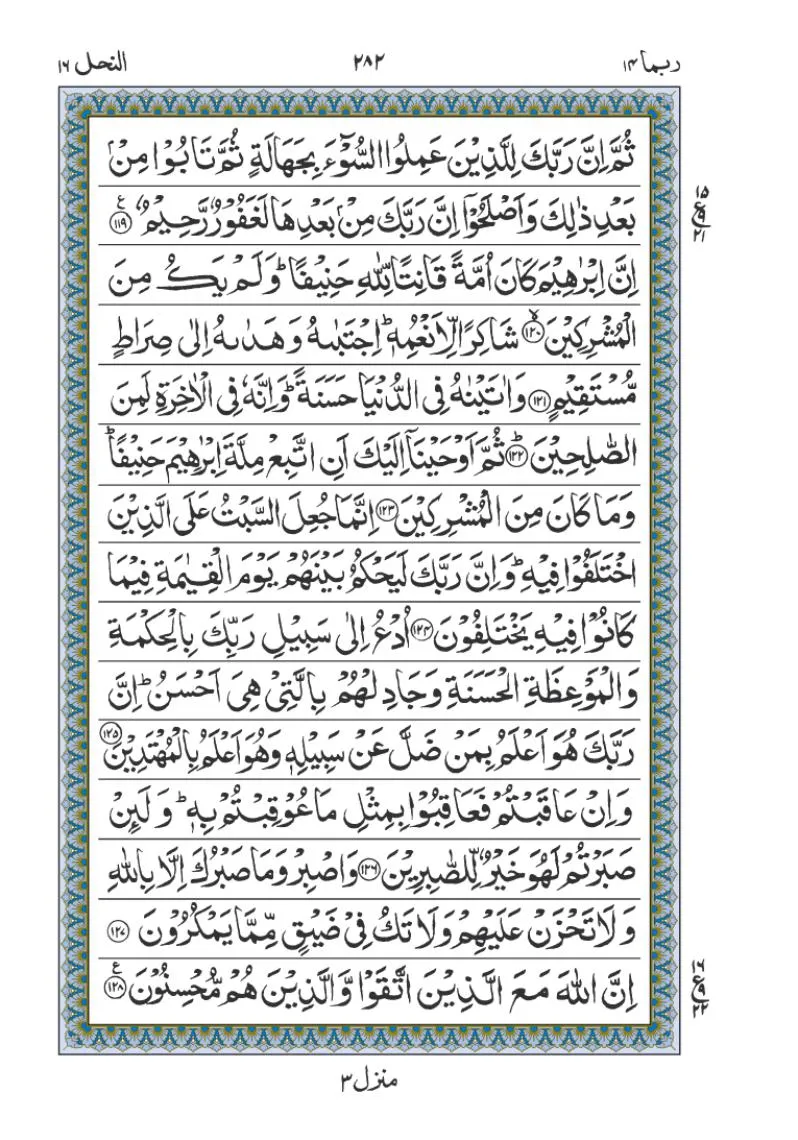 ربما ١٤
٢٨٢
النحل ١٦
ثُمَّ اِنَّ رَبَّكَ لِلَّذِيْنَ عَمِلُوا السُّوْٓءَ بِجَهَالَةٍ ثُمَّ تَابُوْا مِنْۢ
بَعْدِ ذٰلِكَ وَاَصْلَحُوْۤا اِنَّ رَبَّكَ مِنْۢ بَعْدِهَا لَغَفُوْرٌ رَّحِيْمٌ ۧ﴿١١٩﴾
اِنَّ اِبْرٰهِيْمَ كَانَ اُمَّةً قَانِتًا لِّلّٰهِ حَنِيْفًا ؕ وَلَمْ يَكُ مِنَ
الْمُشْرِكِيْنَ ۙ﴿١٢٠﴾ شَاكِرًا لِّاَنْعُمِهٖ ؕ اِجْتَبٰىهُ وَهَدٰىهُ اِلٰى صِرَاطٍ
مُّسْتَقِيْمٍ ﴿١٢١﴾ وَاٰتَيْنٰهُ فِى الدُّنْيَا حَسَنَةً ؕ وَاِنَّهٗ فِى الْاٰخِرَةِ لَمِنَ
الصّٰلِحِيْنَ ؕ﴿١٢٢﴾ ثُمَّ اَوْحَيْنَاۤ اِلَيْكَ اَنِ اتَّبِعْ مِلَّةَ اِبْرٰهِيْمَ حَنِيْفًا ؕ
وَمَا كَانَ مِنَ الْمُشْرِكِيْنَ ﴿١٢٣﴾ اِنَّمَا جُعِلَ السَّبْتُ عَلَى الَّذِيْنَ
اخْتَلَفُوْا فِيْهِ ؕ وَاِنَّ رَبَّكَ لَيَحْكُمُ بَيْنَهُمْ يَوْمَ الْقِيٰمَةِ فِيْمَا
كَانُوْا فِيْهِ يَخْتَلِفُوْنَ ﴿١٢٤﴾ اُدْعُ اِلٰى سَبِيْلِ رَبِّكَ بِالْحِكْمَةِ
وَالْمَوْعِظَةِ الْحَسَنَةِ وَجَادِلْهُمْ بِالَّتِىْ هِىَ اَحْسَنُ ؕ اِنَّ
رَبَّكَ هُوَ اَعْلَمُ بِمَنْ ضَلَّ عَنْ سَبِيْلِهٖ وَهُوَ اَعْلَمُ بِالْمُهْتَدِيْنَ ﴿١٢٥﴾
وَاِنْ عَاقَبْتُمْ فَعَاقِبُوْا بِمِثْلِ مَا عُوْقِبْتُمْ بِهٖ ؕ وَلَئِنْ
صَبَرْتُمْ لَهُوَ خَيْرٌ لِّلصّٰبِرِيْنَ ﴿١٢٦﴾ وَاصْبِرْ وَمَا صَبْرُكَ اِلَّا بِاللّٰهِ
وَلَا تَحْزَنْ عَلَيْهِمْ وَلَا تَكُ فِىْ ضَيْقٍ مِّمَّا يَمْكُرُوْنَ ﴿١٢٧﴾
اِنَّ اللّٰهَ مَعَ الَّذِيْنَ اتَّقَوْا وَّالَّذِيْنَ هُمْ مُّحْسِنُوْنَ ۧ﴿١٢٨﴾
١٥
ع
٩
٢١
١٦
ع
٩
٢٢
منزل ٣